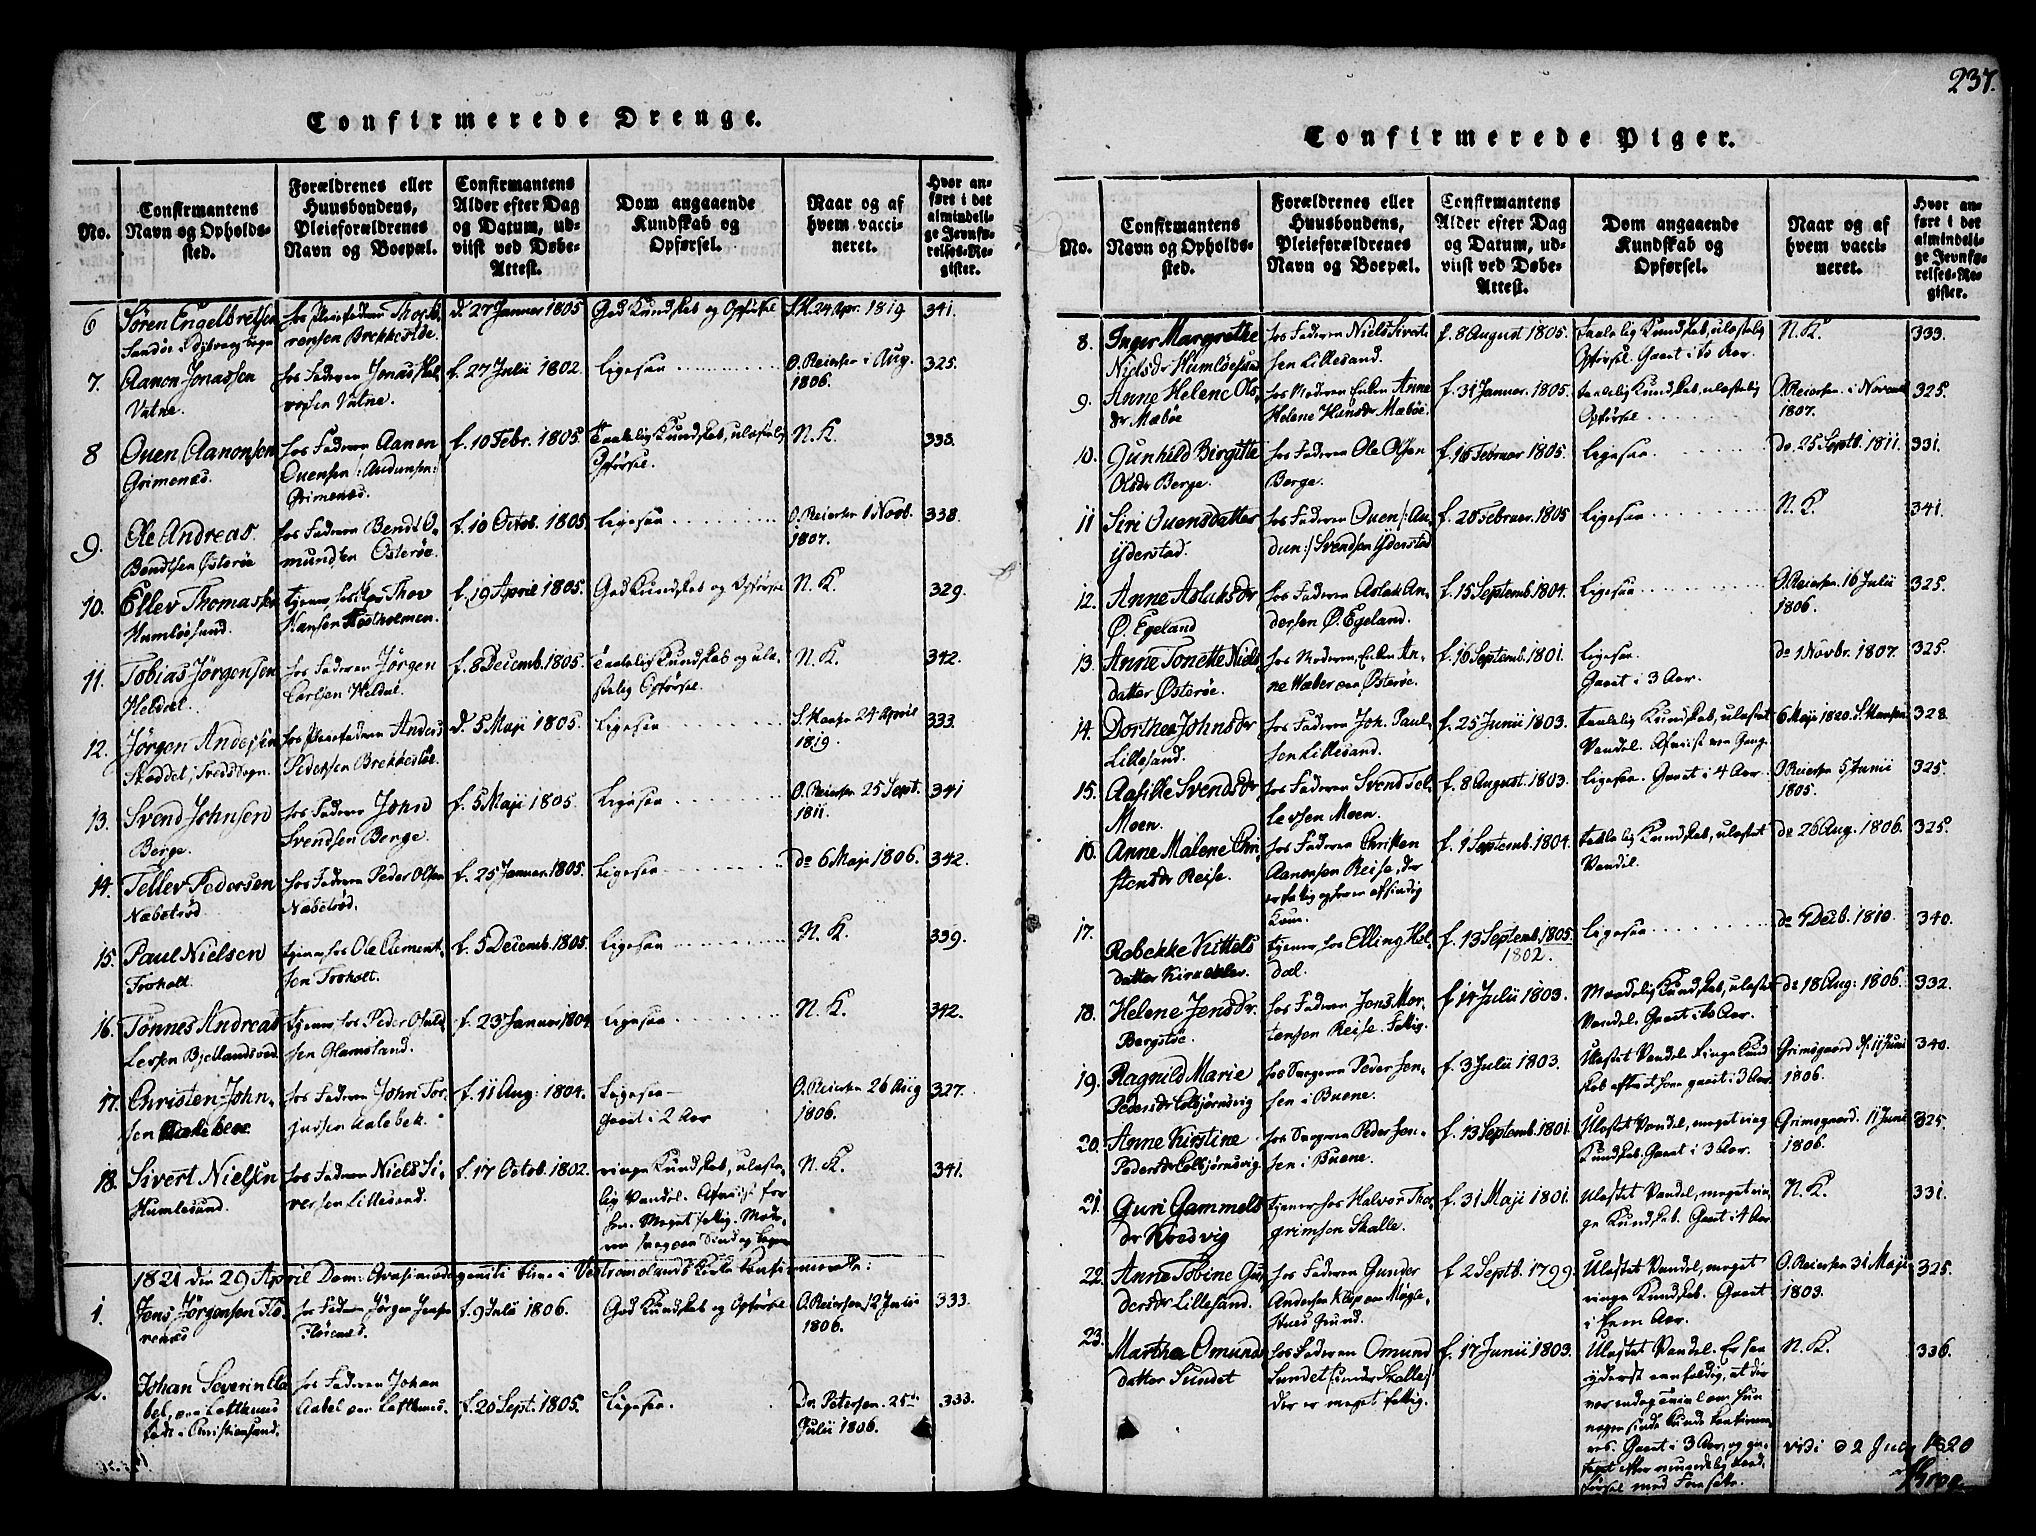 237.
Confirmerede Drenge.
No.
Confirmantens
Navn og Opholds-
sted.
Forældrenes eller
Huusbondens,
Pleieforældrenes
Navn og Boepæl.
Confirmantens
Alder efter Dag
og Datum, ud-
viist ved Døbe-
Attest.
Dom angaaende
Kundskab og
Opførsel.
Naar og af
hvem vacci-
neret.
Hvor an-
ført i det
almindeli-
ge Jevnfø-
relses-Re-
gister.
6
Søren Engelbretsen
d. 27 Januar 1805
God Kundskab og Opførsel
S.H. 24 Apr. 1819
341.
7.
Aanon Jonassen
Vatne.
hos Faderen Jonas Hal-
vorsen Vatne.
f. 27 Julii 1802.
Ligesaa
O. Reiersen i Aug.
1806.
325.
8
Ouen Aanonsen
Grimenæs.
hos Faderen Aanon
Ouensen /:Audunsen:/
Grimenæs.
f. 10 Febr. 1805.
Taalelig Kundskab, ulastelig
Opførsel.
N. K.
338.
9.
Ole Andreas
Bendtsen Østerøe
hos Faderen Bendt O-
mundsen Østerøe.
f. 10 Octob. 1805
Ligesaa
O. Reiersen 1 Novb.
1807.
338.
10.
Ellev Thomassen
Humlesund.
tjener hos Thor
Hansen
f. 19 April 1805.
God Kundskab og Opførsel
N. K.
329.
11.
Tobias Jørgensen
Heldal
hos Faderen Jørgen
Carlsen Heldal.
f. 8 Decemb. 1805.
Taalelig Kundskab og ula-
stelig Opførsel.
N. K.
342.
12.
Jørgen Andersen
hos Pleiefaderen Anders
Pedersen Brekkestøe.
d. 5 Maji 1805.
Ligesaa
S. Hansen 24 April
1819.
333.
13.
Svend Johnsen
Berge.
hos Faderen John
Svendsen Berge.
f. 5 Maji 1805.
Ligesaa
O. Reiersen 25 Sept.
1811.
341
14.
Tellev Pedersen
Næbetrød
hos Faderen Peder Olsen
Næbetrød.
f. 25 Januar. 1805.
Ligesaa
do 6 Maji 1806.
342.
15.
Paul Nielsen
Troholt.
tjener hos Ole Clement-
sen Troholt.
f. 5 Decemb. 1805.
Ligesaa
N. K.
339.
16.
Tønnes Andreas
tjener hos Peder
f. 23 Januar 1804.
Ligesaa
N. K.
342.
17.
Christen John-
sen
hos Faderen John Tor-
jussen Kalebek.
f. 11 Aug: 1804.
Ligesaa
Gaaet i 2 Aar
O. Reiersen 26 Aug
1806.
327.
18.
Sivert Nielsen
Humlesund.
hos Faderen Niels Si-
versen Lillesand.
f. 17 Octob. 1802.
ringe Kundskab, ulaste-
lig Vandel.
N. K.
341.
1821 den 29 April Dom: Qvasimodogeniti bleve i Vestremolands Kirke konfirmerede:
1.
Jens Jørgensen Flø-
renæs
hos Faderen Jørgen Jensen
Florenæs.
f. 9 Julii 1806.
God Kundskab og Opførsel
O. Reiersen 12 Julii
1806.
333.
2.
Johan Severin Aa-
bel,
hos Faderen Johan
Aabel
f. 20 Sept. 1805.
Ligesaa.
Dr. Petersen. 25de
Julii 1806.
333.
Confirmerede Piger.
No.
Confirmantens
Navn og Opholds-
sted.
Forældrenes eller
Huusbondens,
Pleieforældrenes
Navn og Boepæl.
Confirmantens
Alder efter Dag
og Datum, ud-
viist ved Døbe-
Attest.
Dom angaaende
Kundskab og
Opførsel.
Naar og af
hvem vacci-
neret.
Hvor an-
ført i det
almindeli-
ge Jevnfø-
relses-Re-
gister.
8.
Inger Margrethe
Nielsdr Humlesund
hos Faderen Niels Sivert-
sen Lillesand.
f. 8 August 1805.
Taalelig Kundskab, ulastelig
Opførsel. Gaaet i to Aar.
N. K.
333.
9.
Anne Helene Ols-
dr Mæbøe
hos Moderen Enken Anne
Helene Hansdr Mæbøe.
f. 31 Januar. 1805.
taalelig Kundskab, ulastelig
Opførsel
O. Reiersen. i Novemb
1807.
325.
10.
Gunhild Birgitte
Olsdr Berge.
hos Faderen Ole Olsen
Berge.
f. 16 Februar 1805.
Ligesaa
do 25 Septb. 1811.
331.
11
Siri Ouensdatter
Ytterstad.
hos Faderen Ouen /:Au-
dun:/ Svendsen Ytterstad
f. 20 Februar. 1805
Ligesaa
N. K.
341.
12.
Anne Aslaksdr
Ø. Egeland
hos Faderen Aslak An-
dersen Ø. Egeland.
f. 15 Septemb. 1804.
Ligesaa
O. Reiersen 16 Julii
1806.
325.
13.
Anne Tonette Niels-
datter Østerøe.
hos Moderen, Enken An-
ne Weber paa Østerøe.
f. 16 Septemb. 1801.
Ligesaa.
Gaaet i 3 Aar.
do 1 Novbr. 1807.
325.
14.
Dorthea Johnsdr
Lillesand.
hos Faderen Joh. Paul-
sen Lillesand.
f. 25 Junii 1803.
taalelig Kundskab, ulastet
Vandel. Afviist een Gang.
6 Maji 1820. S. Hansen
328.
15.
Aasille Svendsdr
Moen.
hos Faderen Svend Tel-
levsen Moen.
f. 8 August. 1803.
Ligesaa. Gaaet i 4 Aar.
O. Reiersen 5 Junii
1805.
325.
16.
Anne Malene Chri-
stensdr Reise.
hos Faderen Christen
Aanonsen Reise, der
f. 1 Septemb. 1804.
taalelig Kundskab, ulastet
Vandel.
do 26 Aug. 1806.
325.
17.
Rebekke Kittels
datter
tjener hos Elling Hel-
dal.
f. 13 Septemb. 1805.
1802.
Ligesaa
do 7 Decb. 1810.
340.
18.
Helene Jensdr.
Bergstøe.
hos Faderen Jens Mor-
tensen Reise. Fattig.
f. 14 Julii 1803.
Maadelig Kundskab, ulastet
Vandel. Gaaet i to Aar.
do 18 Aug: 1806.
332.
19.
Ragnild Marie
Pedersdr Colbjørnsvig
hos Svogeren Peder Jen-
sen i Buene.
f. 3 Julii 1803.
Ulastet Vandel. Ringe Kund-
skab gaaet i 3 Aar.
Grimsgaard d. 11 Junii
1806.
340.
20.
Anne Kirstine
Pedersdr Colbjørnsvig.
hos Svogeren Peder Jen-
sen i Buene.
f. 13 Septemb. 1801.
Ulastet Vandel, meget ringe
Kundskab. Gaaet i 3 Aar.
Grimsgaard. 11 Junii
1806.
325.
21.
Guri Gammels
dr
tjener hos Halvor Thor-
grimsen Skalle.
f. 31 Maji 1801.
Ulastet Vandel, meget rin-
ge Kundskab. Gaaet i 4 Aar
N. K.
331.
22.
Anne Tobine Gun-
dersdr Lillesand.
hos Faderen Gunder
Andersen
f. 2 Septb. 1799.
Ulastet Vandel, meget
ringe Kundskab. Gaaet
i fem Aar.
O. Reiersen 31 Maji
1803.
325.
23.
Marthe Omunds
datter Sundet
hos Faderen Omund
Sundet /:under Skalle:/
der er meget fattig.
f. 17 Junii 1803.
Ulastet Vandel. Er saa
yderst eenfoldig, at der
N. K.
336.
vidi d 2 July 1820